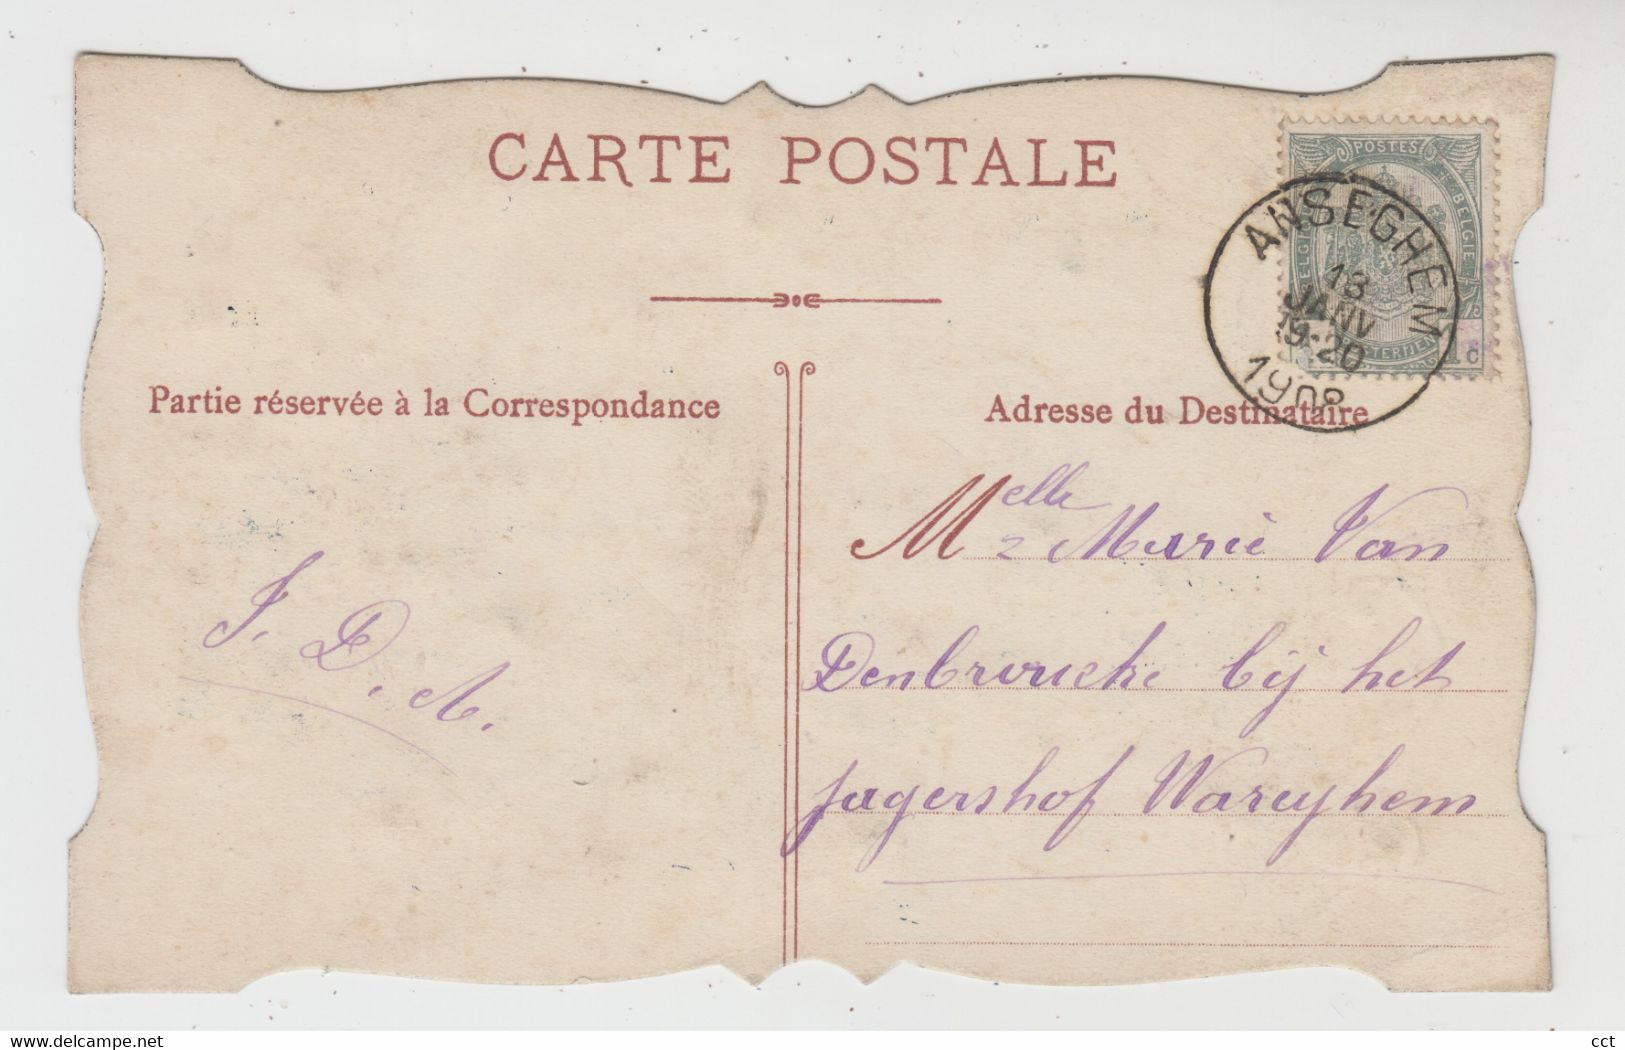 CARTE POSTALE
POSTES
BELGIE
ANSEGHEM
13
JANV
19-20
1908
1c
Partie réservée à la Correspondance
Adresse du Destinataire
Melle Marie Van
Denbroucke bij het
jagershof Wareghem
J. D. A.
www.delcampe.net
cct